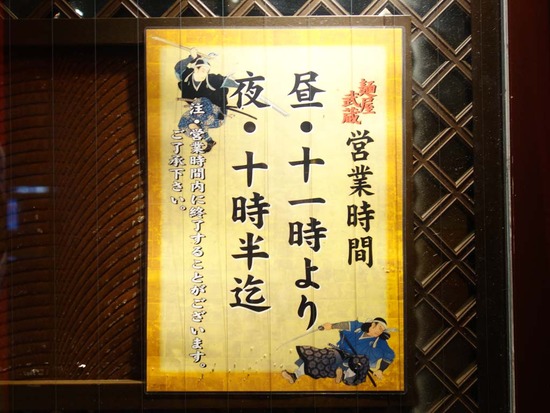 麺屋武蔵
営業時間
昼・十一時より
夜・十時半迄
注・営業時間内に終了することがございます。
ご了承下さい。